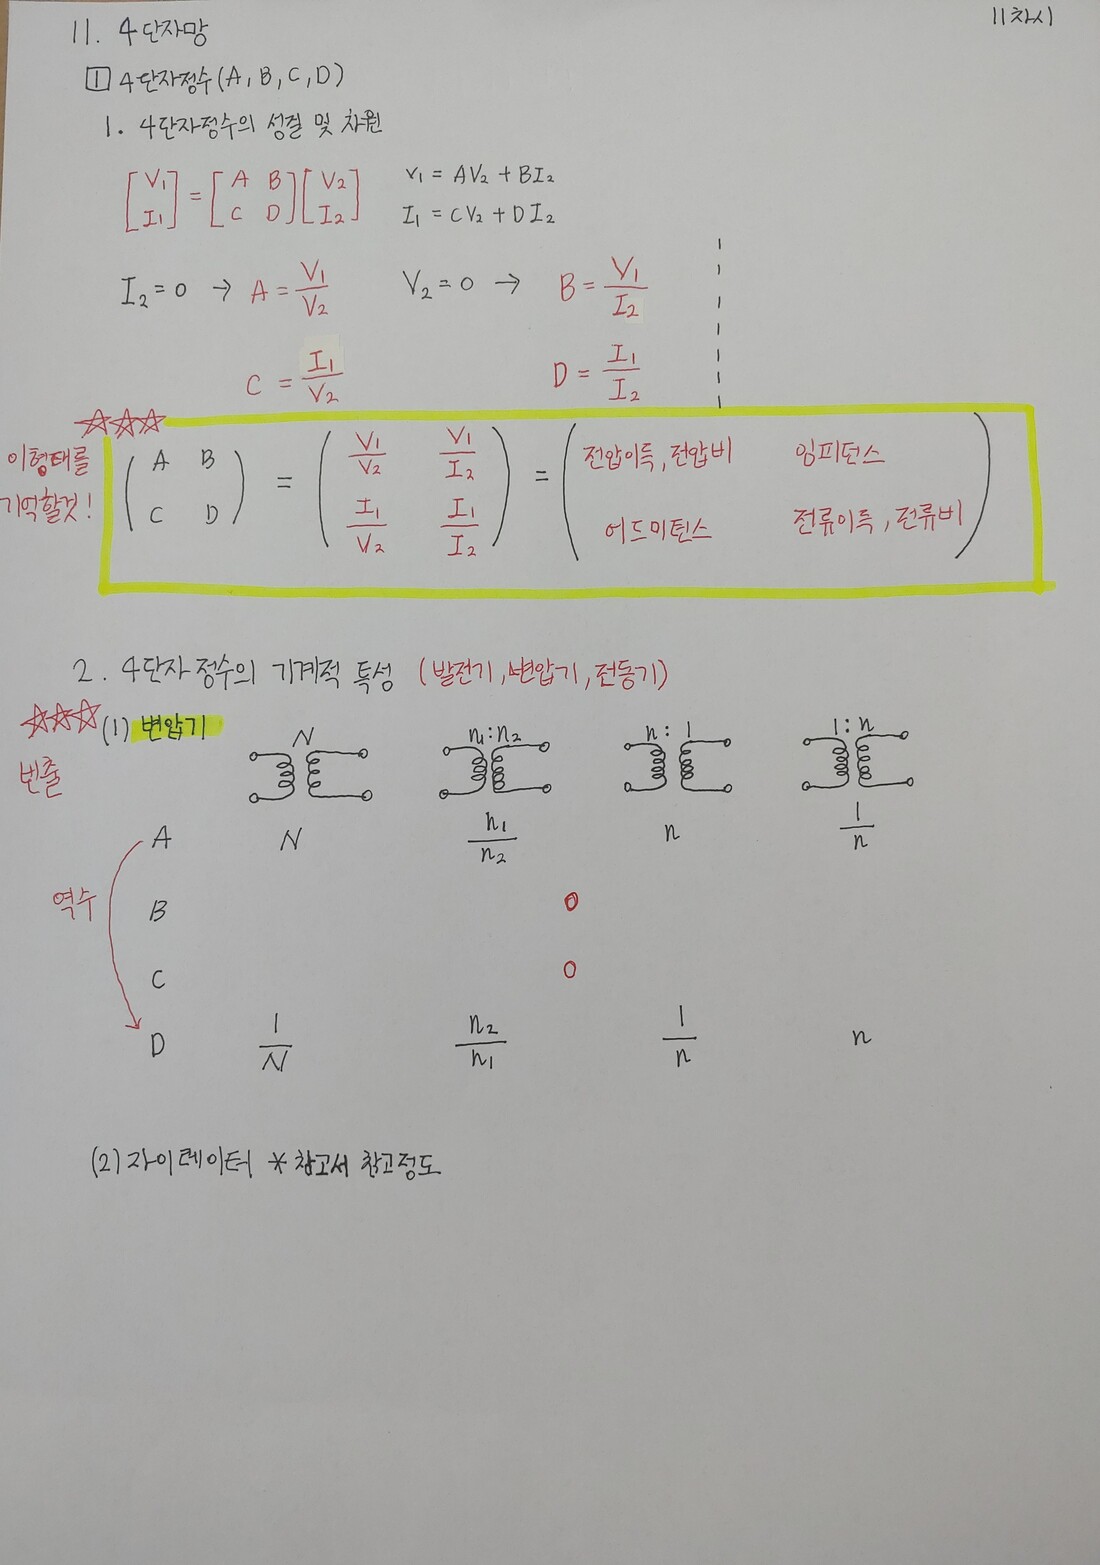 11차시
11. 4단자망
1 4단자정수(A, B, C, D)
1. 4단자정수의 성질 및 차원
[V₁ I₁] = [A B C D][V₂ I₂] V₁ = AV₂ + BI₂
I₁ = CV₂ + DI₂
I₂=0 → A = V₁/V₂ V₂=0 → B = V₁/I₂
C = I₁/V₂ D = I₁/I₂
☆☆☆
이형태를
기억할것!
(A B C D) = (V₁/V₂ V₁/I₂ I₁/V₂ I₁/I₂) = (전압이득,전압비 임피던스
어드미턴스 전류이득,전류비)
2. 4단자정수의 기계적 특성 (발전기,변압기,전동기)
☆☆☆ (1) 변압기 N n₁:n₂ n:1 1:n
빈출
A N n₁/n₂ n 1/n
역수
B 0
C 0
D 1/N n₂/n₁ 1/n n
(2) 자이레이터 * 참고서 참고정도